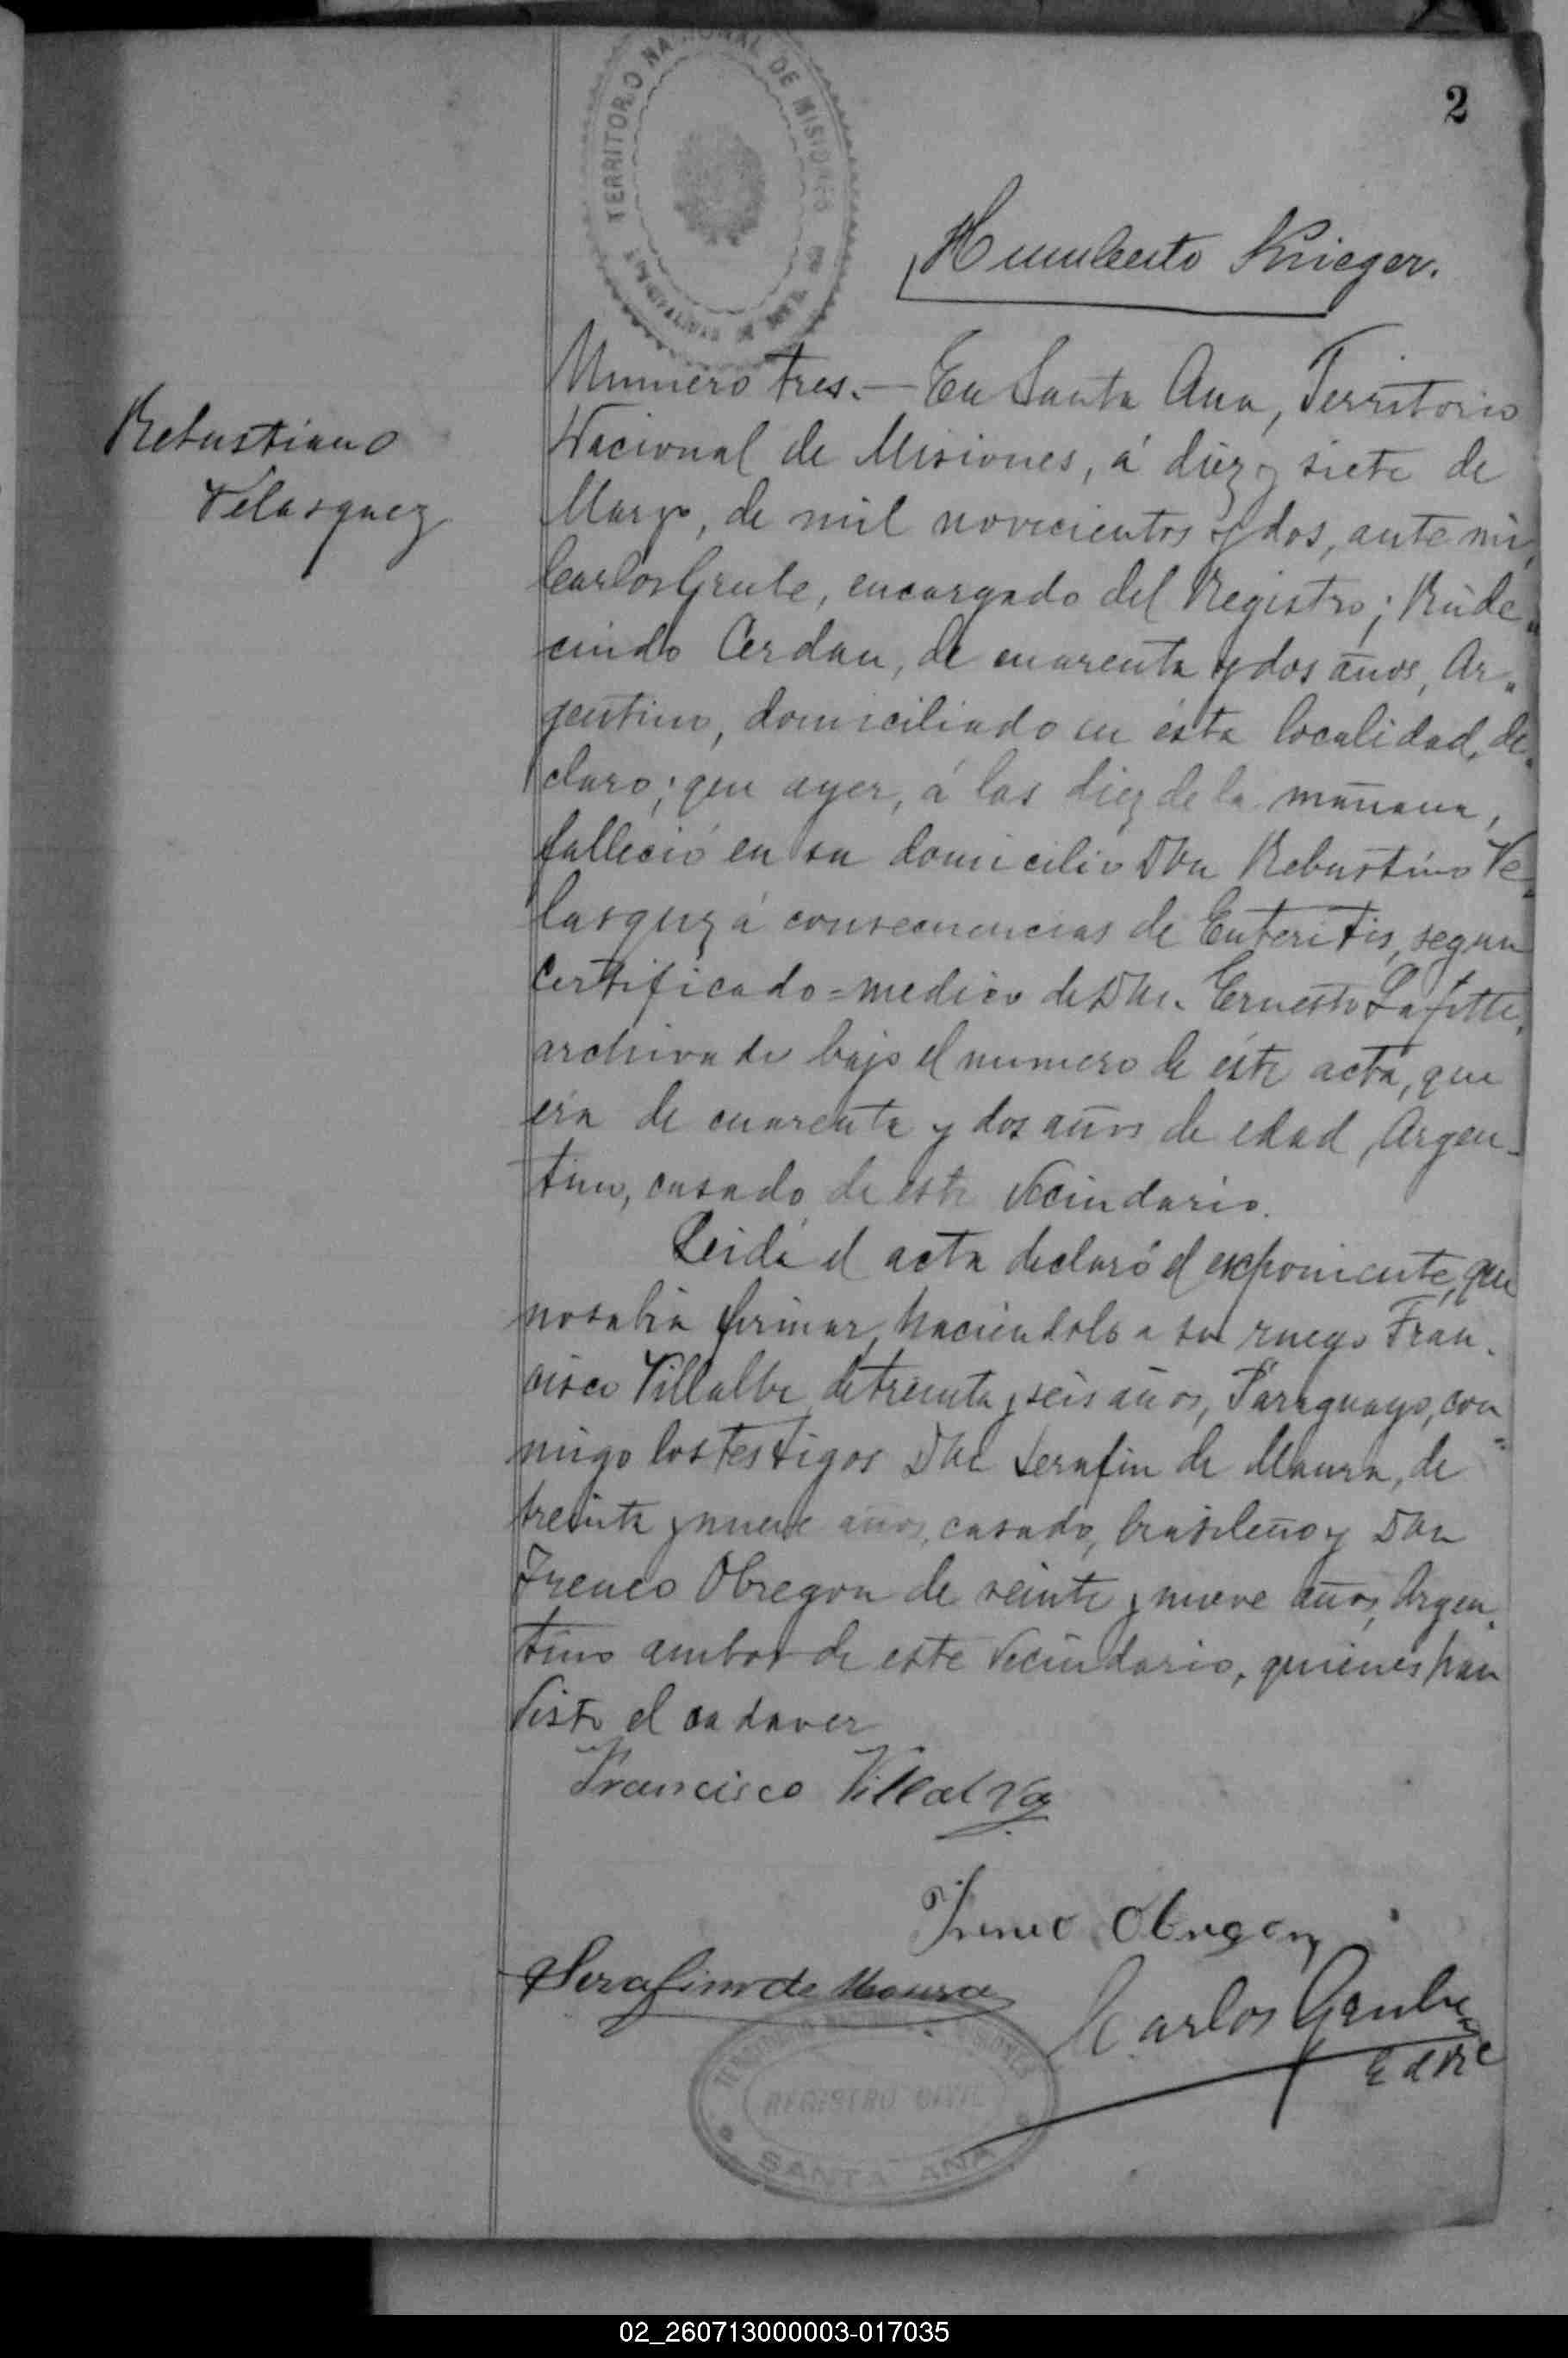 2
TERRITORIO NACIONAL DE MISIONES
Humberto Krieger.
Rebustiano
Velasquez
Numero tres.— En Santa Ana, Territorio
Nacional de Misiones, á diez y siete de
Marzo, de mil novecientos y dos, ante mi,
Carlos Grube, encargado del Registro; Rude„
cindo Cerdan, de cuarenta y dos años, Ar„
gentino, domiciliado en ésta localidad, de„
claro; que ayer, á las diez de la mañana,
falleció en su domicilio Don Rebustino Ve„
lasquez á consecuencias de Enteritis, segun
Certificado=medico de Don Ernesto Lafitte,
archivado bajo el numero de éste acta, que
era de cuarenta y dos años de edad, Argen-
tino, casado de este vecindario.
Leida el acta declaró el exponiente, que
no sabia firmar, haciendolo a su ruego Fran„
cisco Villalba, de treinta y seis años, Paraguayo, con
migo los testigos Don Serafin de Maura, de
treinta y nueve años, casado, brasileño y Don
Ireneo Obregon de veinte y nueve años, Argen„
tino ambos de este vecindario, quienes han
visto el cadaver
Francisco Villalva
Ireneo Obregon
Serafim de Moura
Carlos Grube
E d R C
REGISTRO CIVIL
SANTA ANA
02_260713000003-017035